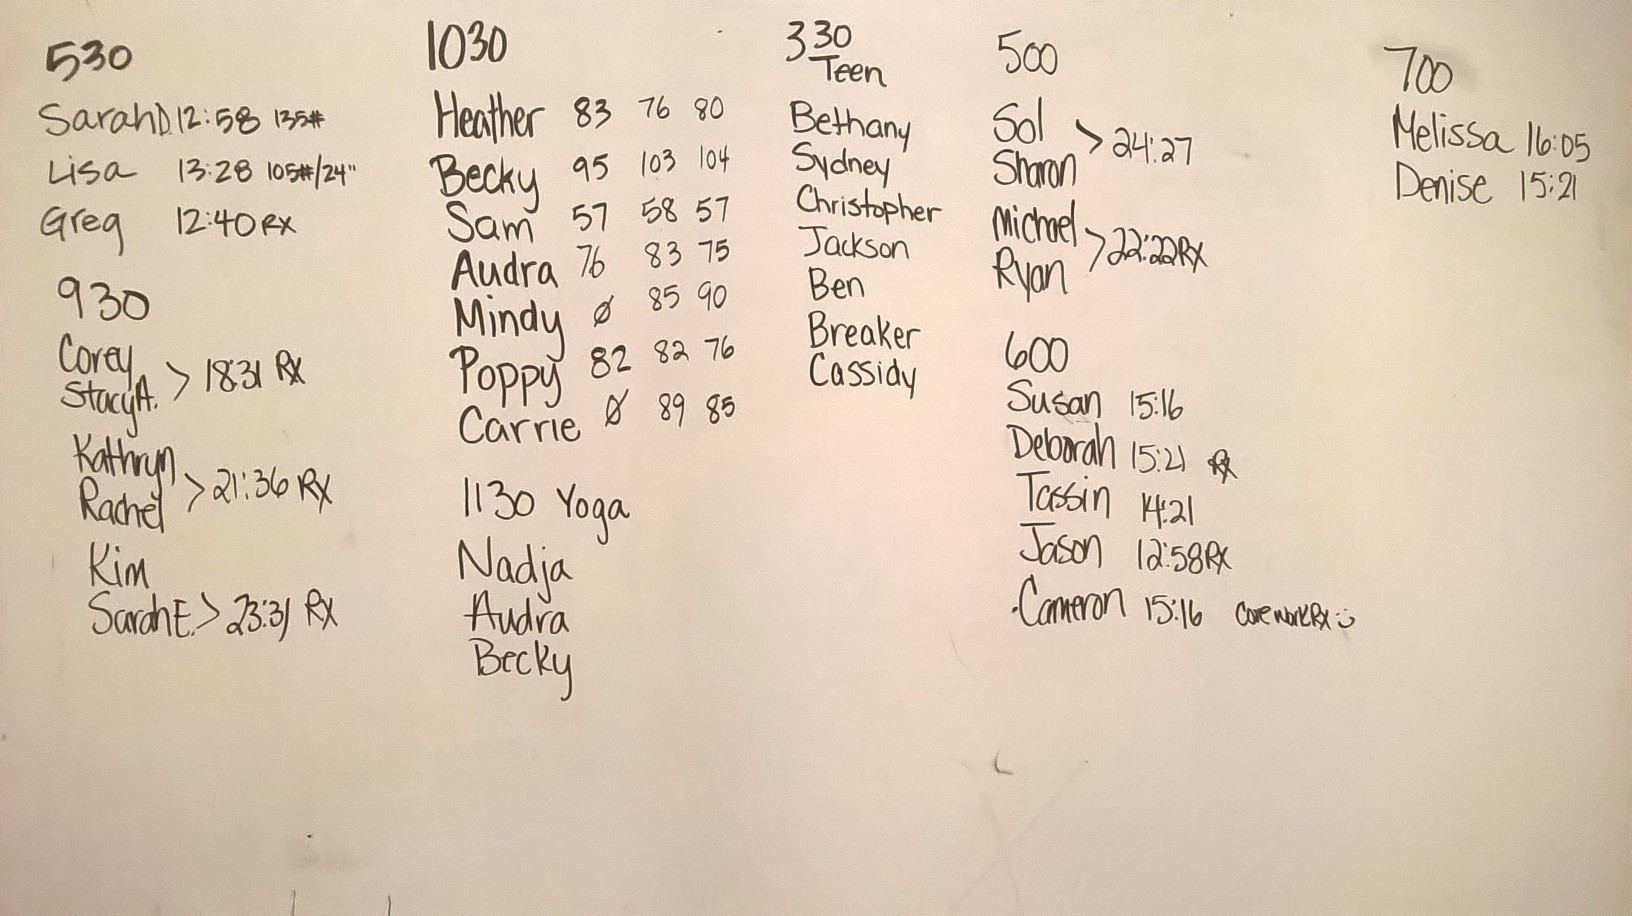 530
Sarah D. 12:58 135#
Lisa 13:28 105#/24"
Greg 12:40 RX
930
Corey
Stacy A. > 18:31 Rx
Kathryn
Rachel > 21:36 Rx
Kim
Sarah E. > 23:31 Rx
1030
Heather 83 76 80
Becky 95 103 104
Sam 57 58 57
Audra 76 83 75
Mindy Ø 85 90
Poppy 82 82 76
Carrie Ø 89 85
1130 Yoga
Nadja
Audra
Becky
330
Teen
Bethany
Sydney
Christopher
Jackson
Ben
Breaker
Cassidy
500
Sol
Sharon > 24:27
Michael
Ryan > 22:22 Rx
600
Susan 15:16
Deborah 15:21 Rx
Tassin 14:21
Jason 12:58 Rx
Cameron 15:16 Core work Rx :)
700
Melissa 16:05
Denise 15:21